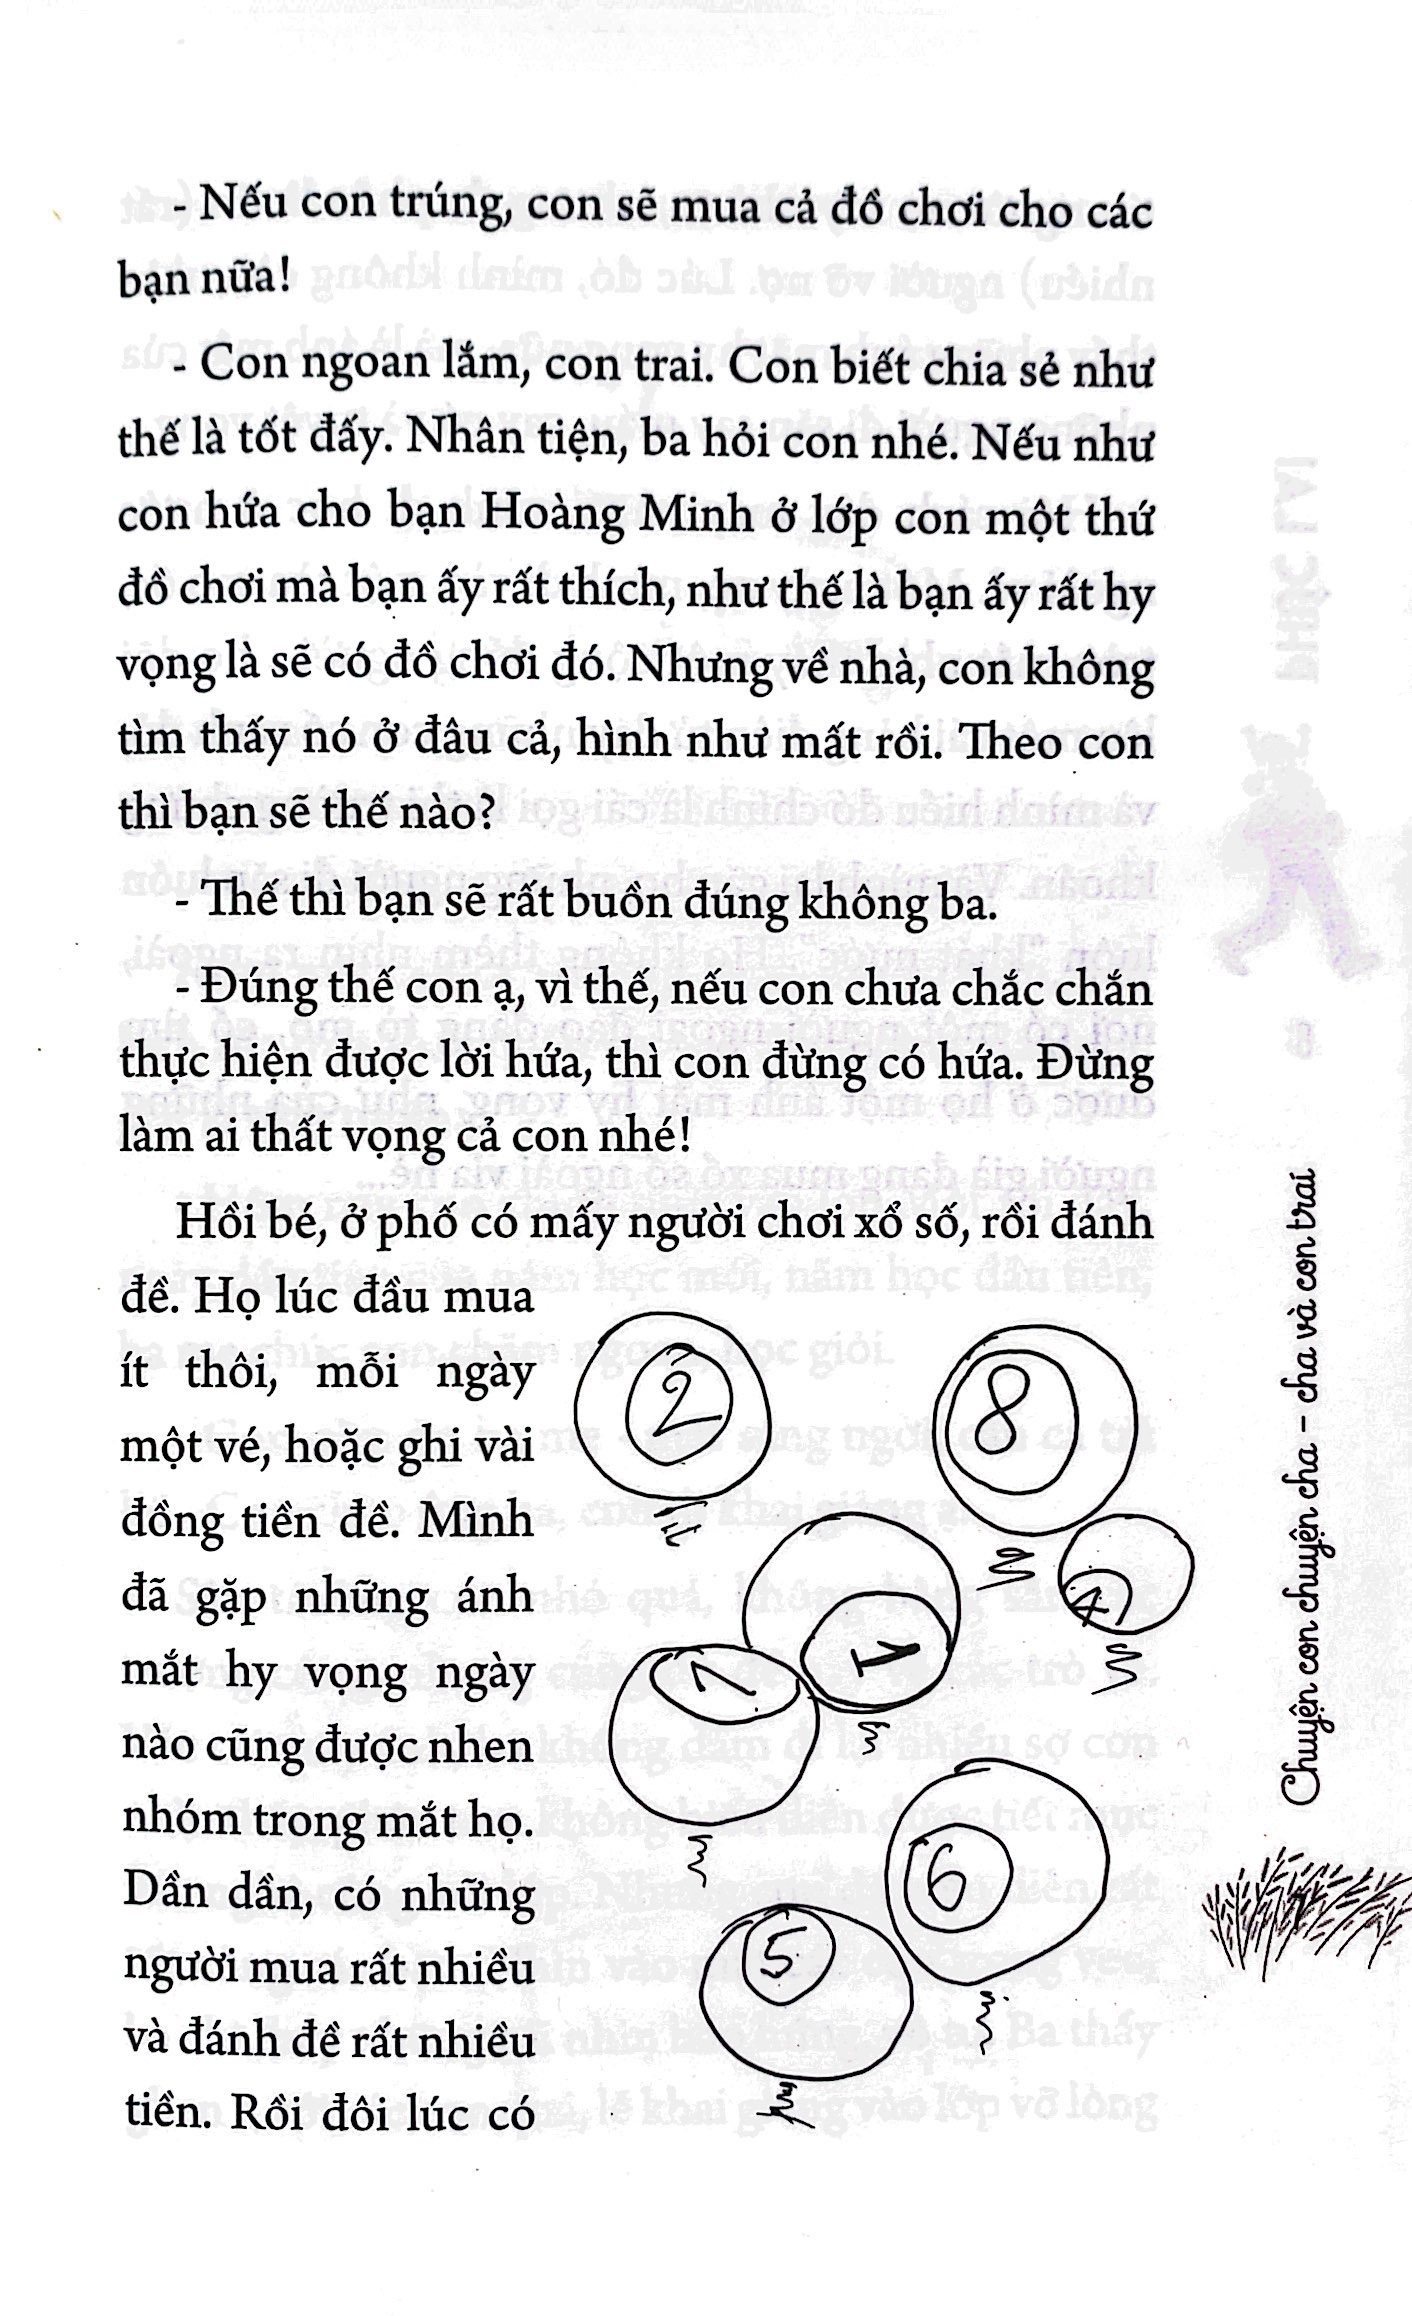 - Nếu con trúng, con sẽ mua cả đồ chơi cho các
bạn nữa!
- Con ngoan lắm, con trai. Con biết chia sẻ như
thế là tốt đấy. Nhân tiện, ba hỏi con nhé. Nếu như
con hứa cho bạn Hoàng Minh ở lớp con một thứ
đồ chơi mà bạn ấy rất thích, như thế là bạn ấy rất hy
vọng là sẽ có đồ chơi đó. Nhưng về nhà, con không
tìm thấy nó ở đâu cả, hình như mất rồi. Theo con
thì bạn sẽ thế nào?
- Thế thì bạn sẽ rất buồn đúng không ba.
- Đúng thế con ạ, vì thế, nếu con chưa chắc chắn
thực hiện được lời hứa, thì con đừng có hứa. Đừng
làm ai thất vọng cả con nhé!
Hồi bé, ở phố có mấy người chơi xổ số, rồi đánh
đề. Họ lúc đầu mua
ít thôi, mỗi ngày
một vé, hoặc ghi vài
đồng tiền đề. Mình
đã gặp những ánh
mắt hy vọng ngày
nào cũng được nhen
nhóm trong mắt họ.
Dần dần, có những
người mua rất nhiều
và đánh đề rất nhiều
tiền. Rồi đôi lúc có
2
8
4
1
7
6
5
Chuyện con chuyện cha – cha và con trai